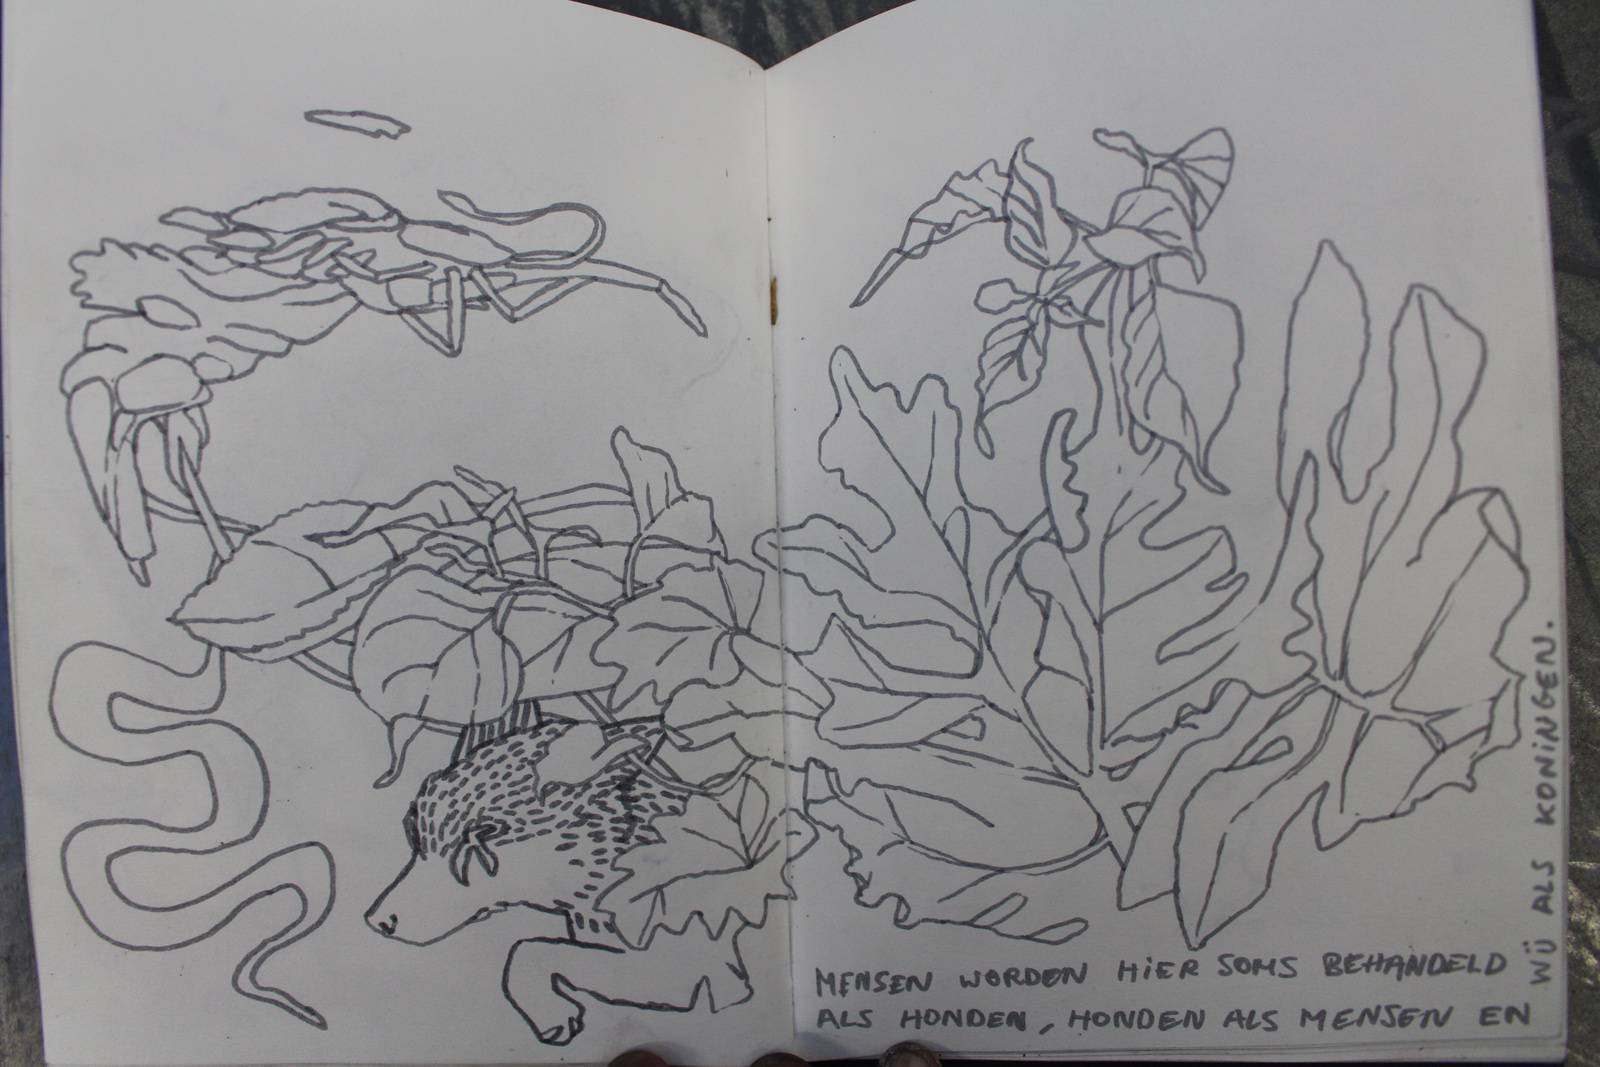 MENSEN WORDEN HIER SOMS BEHANDELD
ALS HONDEN, HONDEN ALS MENSEN EN
WIJ ALS KONINGEN.